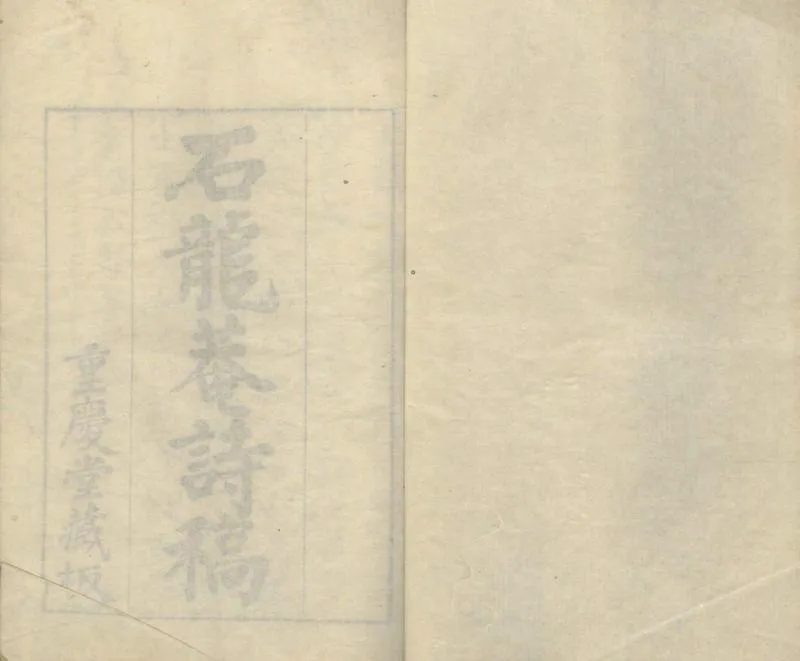 石龍菴詩稿
重慶堂藏板